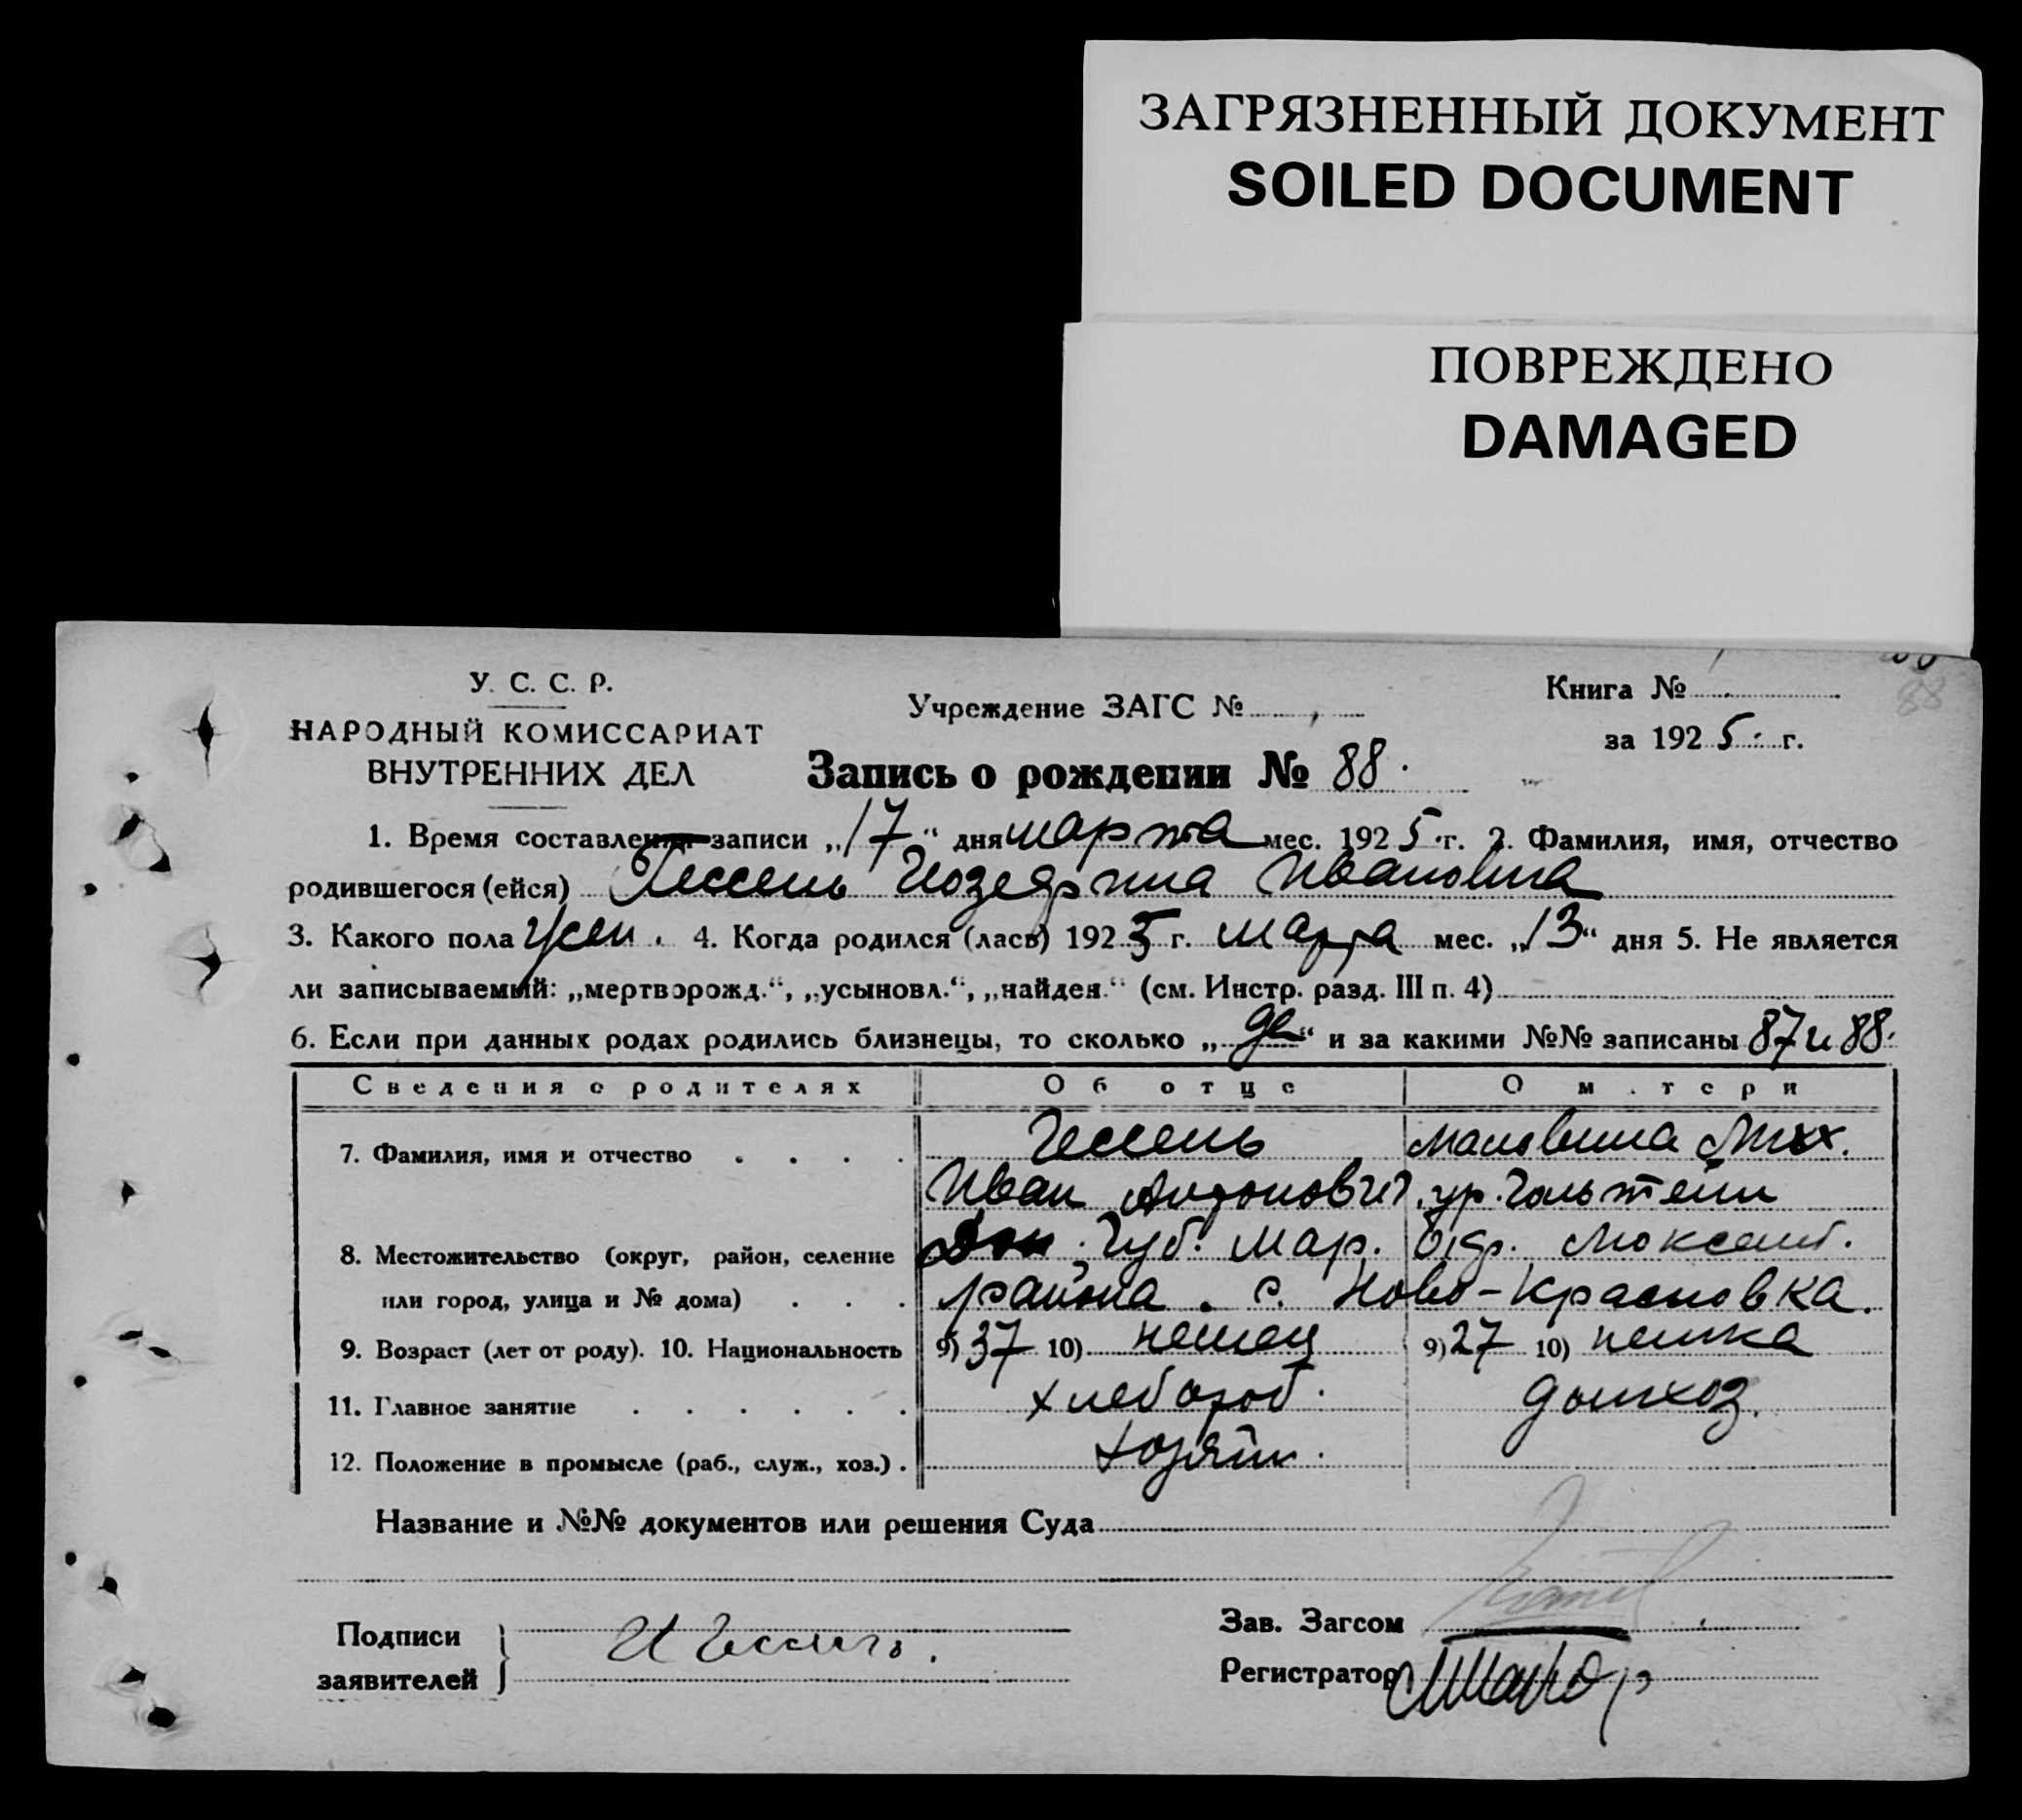 ЗАГРЯЗНЕННЫЙ ДОКУМЕНТ
SOILED DOCUMENT
ПОВРЕЖДЕНО
DAMAGED
88
У. С. С. Р.
НАРОДНЫЙ КОМИССАРИАТ
ВНУТРЕННИХ ДЕЛ
Учреждение ЗАГС №
Книга №
за 1925 г.
Запись о рождении № 88.
1. Время составления записи „17“ дня марта мес. 1925 г. 2. Фамилия, имя, отчество
родившегося (ейся) Гессень Иозефина Ивановна
3. Какого пола жен. 4. Когда родился (лась) 1925 г. марта мес. „13“ дня 5. Не является
ли записываемый: „мертворожд.“, „усыновл.“, „найден.“ (см. Инстр. разд. III п. 4)
6. Если при данных родах родились близнецы, то сколько „дв“ и за какими №№ записаны 87 и 88.
Сведения о родителях Об отце О матери
7. Фамилия, имя и отчество Гессень Мальвина
Иван Антонович ур. Гольтейн
8. Местожительство (округ, район, селение Дон. Губ. Мар. Люксемб.
или город, улица и № дома) района. с. Ново-Красновка.
9. Возраст (лет от роду). 10. Национальность 9) 37 10) немец 9) 27 10) немка
11. Главное занятие хлебороб. домхоз.
12. Положение в промысле (раб., служ., хоз.) хозяин.
Название и №№ документов или решения Суда
Подписи
заявителей
И Гессень.
Зав. Загсом
Регистратор